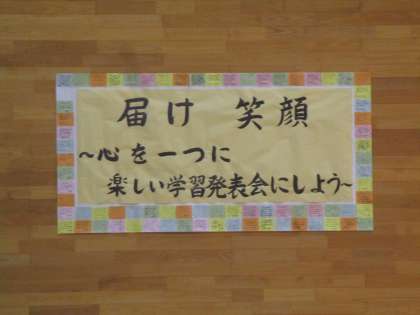 届け 笑顔
~心を一つに
楽しい学習発表会にしよう~